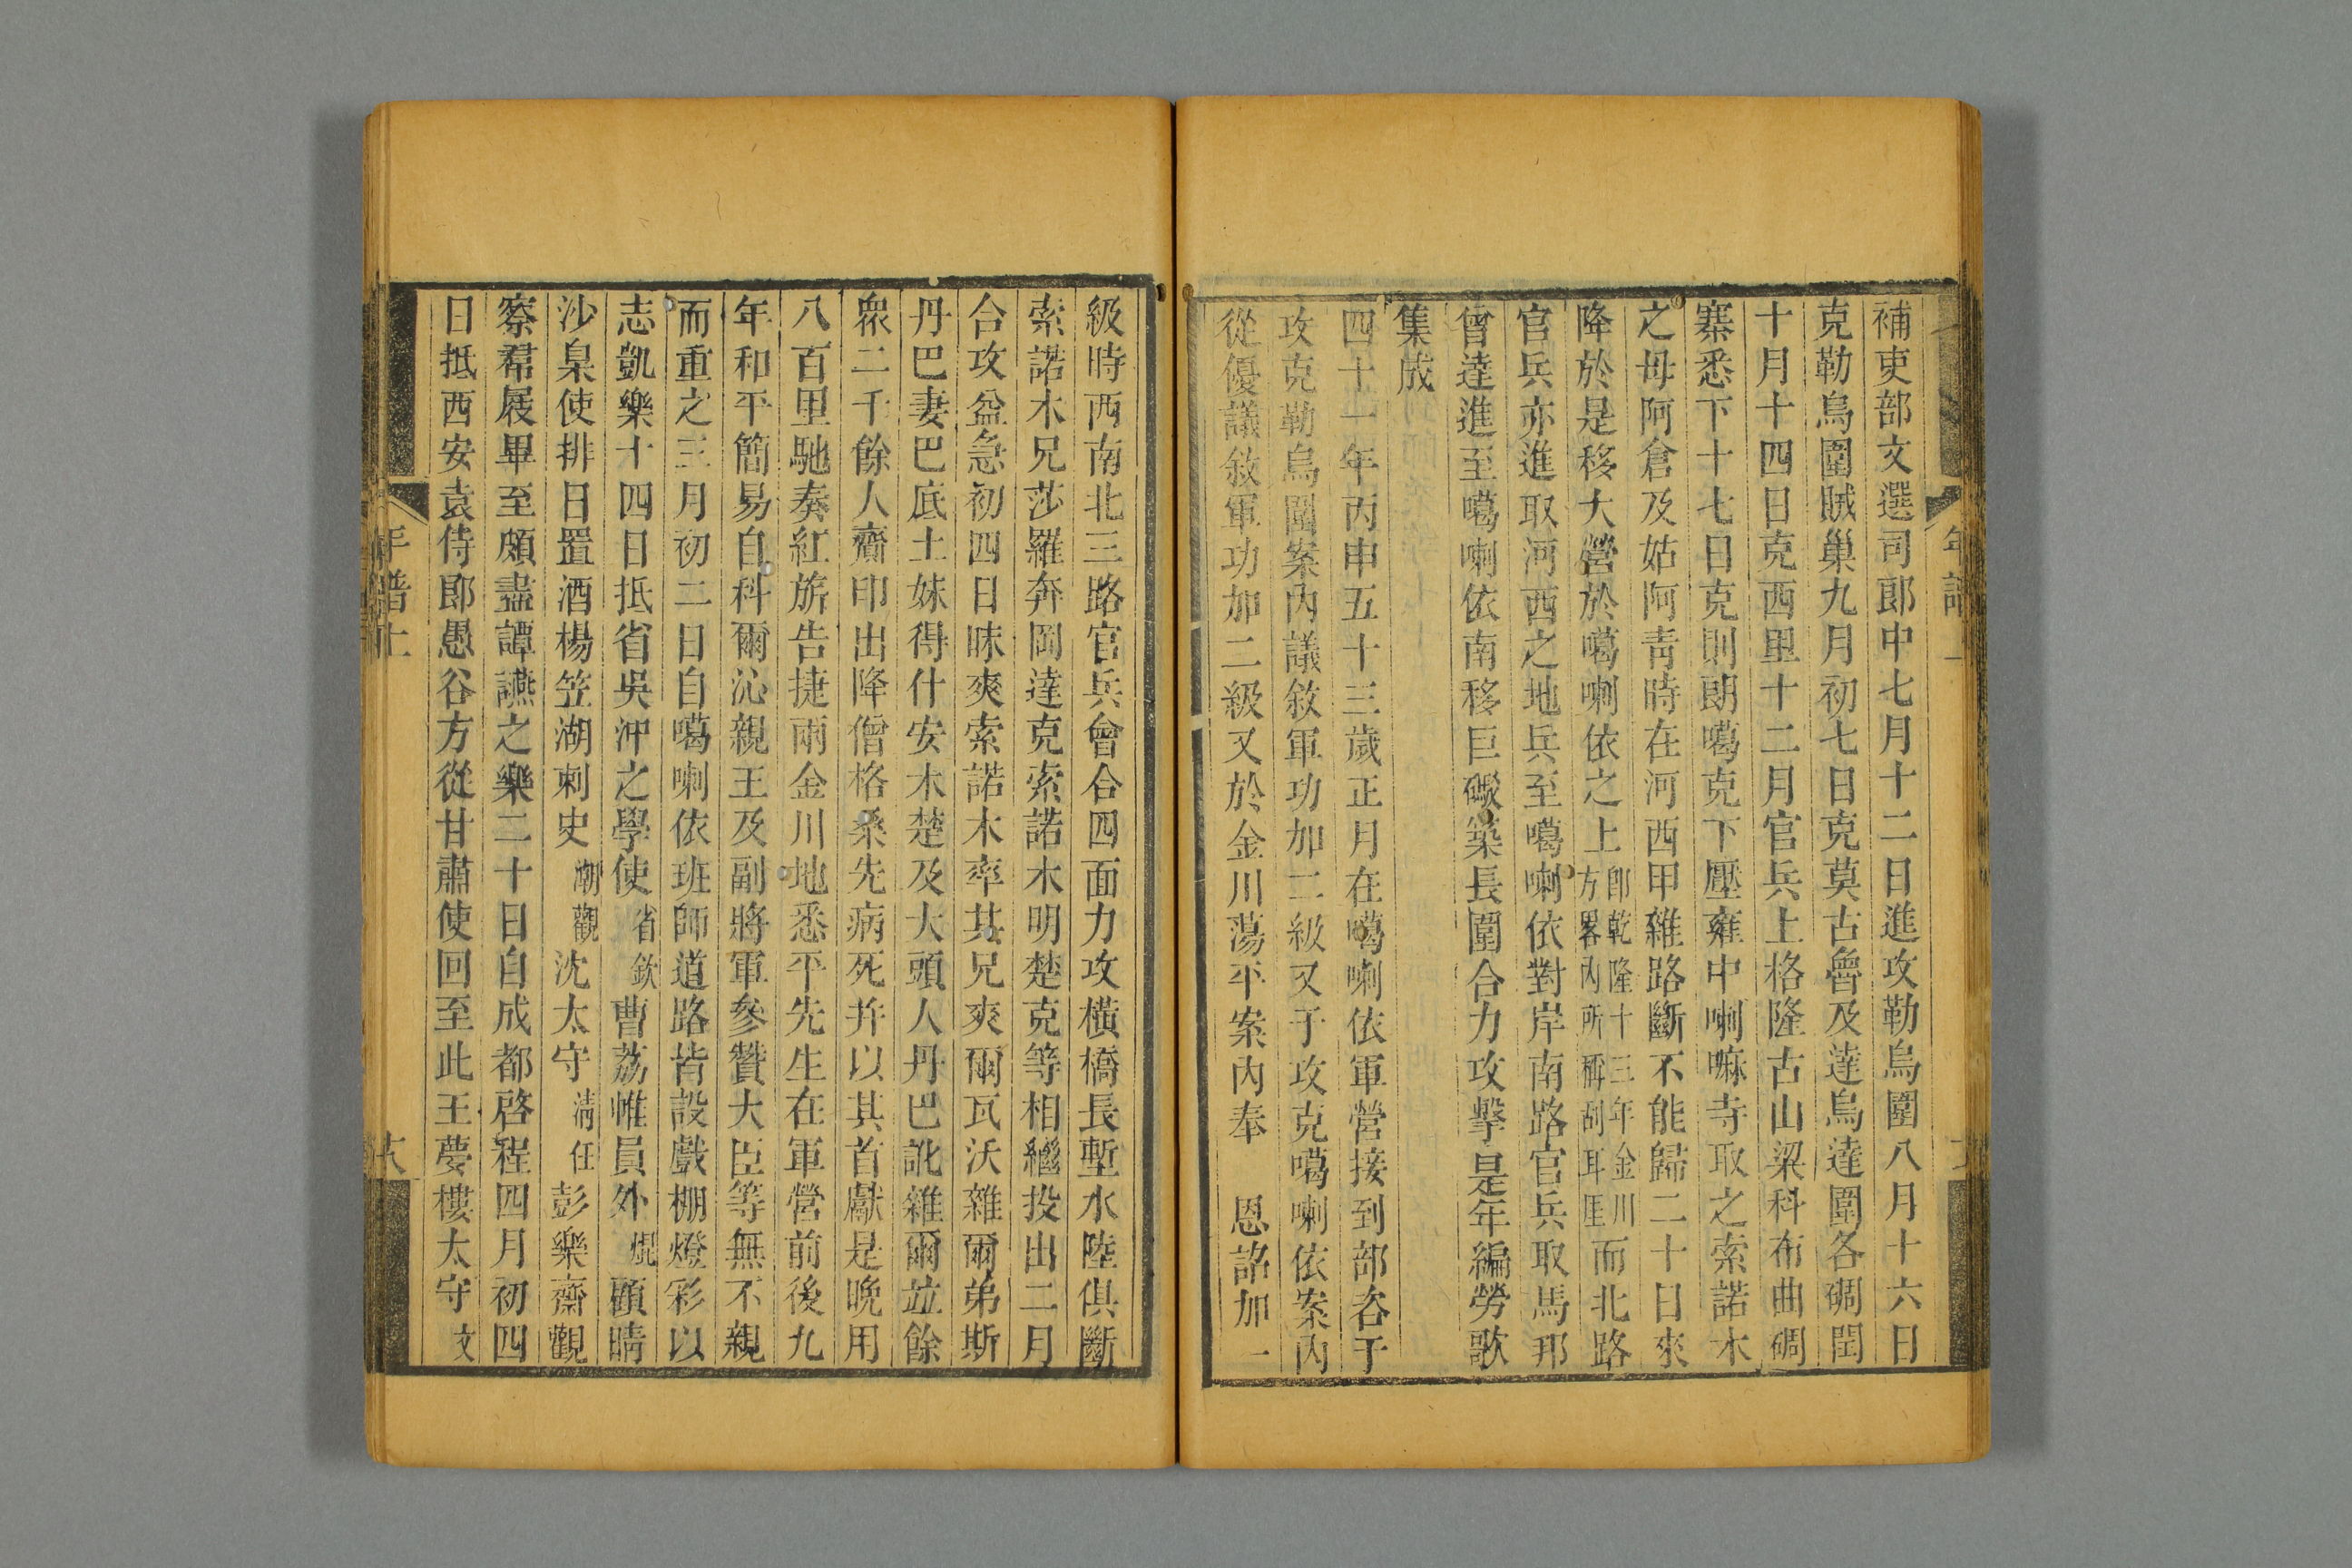 補吏部文選司郎中七月十二日進攻勒烏圍八月十六日
克勒烏圍賊巢九月初七日克莫古魯及達烏達圍各碉閏
十月十四日克西里十二月官兵上格隆古山梁科布曲碉
寨悉下十七日克則朗噶克下壓雍中喇嘛寺取之索諾木
之母阿倉及姑阿青時在河西甲雜路斷不能歸二十日來
降於是移大營於噶喇依之上卽乾隆十三年金川方畧內所稱刮耳厓而北路
官兵亦進取河西之地兵至噶喇依對岸南路官兵取馬邦
曾達進至噶喇依南移巨礮築長圍合力攻擊是年編勞歌
集成
四十一年丙申五十三歲正月在噶喇依軍營接到部咨于
攻克勒烏圍案內議敘軍功加二級又于攻克噶喇依案內
從優議敘軍功加二級又於金川蕩平案內奉 恩詔加一
年譜
級時西南北三路官兵會合四面力攻橫橋長塹水陸俱斷
索諾木兄莎羅奔岡達克索諾木明楚克等相繼投出二月
合攻益急初四日昧爽索諾木率其兄爽爾瓦沃雜爾弟斯
丹巴妻巴底土妹得什安木楚及大頭人丹巴訛雜爾竝餘
衆二千餘人齎印出降僧格桑先病死并以其首獻是晚用
八百里馳奏紅旂告捷兩金川地悉平先生在軍營前後九
年和平簡易自科爾沁親王及副將軍參贊大臣等無不親
而重之三月初二日自噶喇依班師道路皆設戲棚燈彩以
志凱樂十四日抵省吳沖之學使省欽曹荔帷員外焜顧晴
沙臬使排日置酒楊笠湖刺史潮觀沈太守淸任彭樂齋觀
察羣屐畢至頗盡譚讌之樂二十日自成都啓程四月初四
日抵西安袁侍郎愚谷方從甘肅使回至此王夢樓太守文
年譜上
六